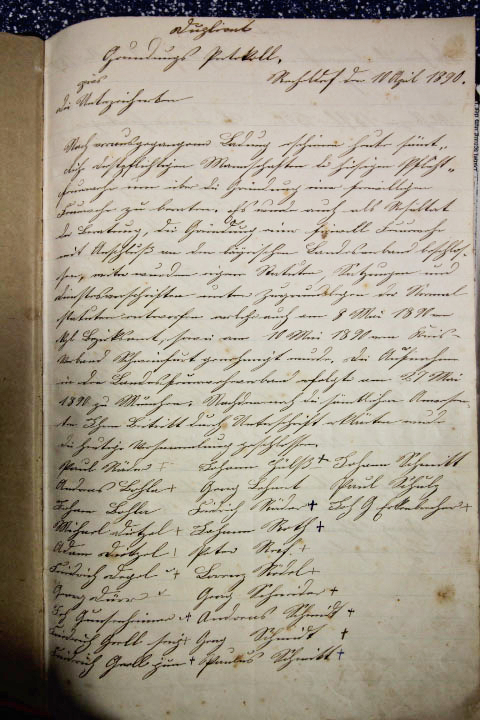 Duplicat
Gründungs Protokoll.
zur
den 10 April 1890.
Die Unterzeichneten
Nach vorausgegangener Ladung erschienen heute sämt-
liche dienstpflichtigen Mannschaften der hiesigen Pflicht-
feuerwehr um über die Gründung einer freiwilligen
Feuerwehr zu beraten. Es wurde auch als Resultat
der Beratung, die Gründung einer freiwill Feuerwehr
mit Anschluß an den bayrischen Landesverband beschlos-
sen, weiter wurden eigene Statuten, Satzungen und
Dienstesvorschriften unter Zugrundelegung der Normal
statuten entworfen welche auch am 8 Mai 1890 vom
kgl Bezirksamt, sowie am 10 Mai 1890 vom Kreis-
verband Schweinfurt genehmigt wurden. Die Aufnahme
in den Landesfeuerwehrverband erfolgte am 27 Mai
1890 zu München. Nachdem noch die sämtlichen Anwesen-
den ihren Beitritt durch Unterschrift erklärten wurde
die heutige Versammlung geschlossen.
Paul Röder Johann + Johann Schmitt
Andreas + Georg Paul Schulz
Johann Friedrich Röder + Joh G +
Michael Dietzel + Johann Roth +
Adam Dietzel Peter +
Friedrich + Lorenz Rödel +
Georg Dürr Georg Schneider +
Joh + Andreas Schmidt +
Friedrich Grell sen + Georg Schmidt +
Friedrich Grell jun + Paulus Schmitt +